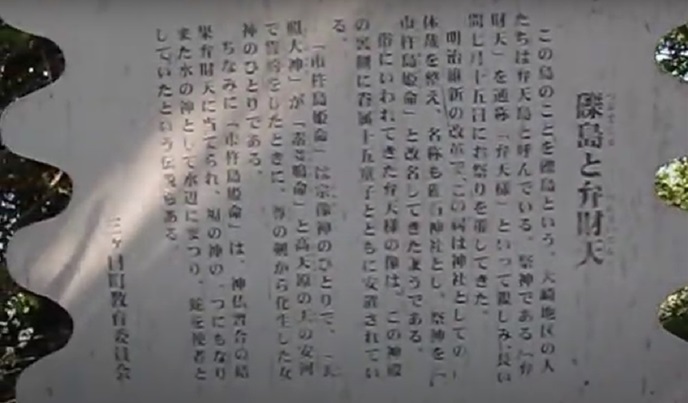 礫島と弁財天
この島のことを礫島という。大崎地区の人
たちは弁天島と呼んでいる。祭神である「弁
財天」を通称「弁天様」といって親しみ、長い
間七月十五日にお祭りを催してきた。
明治維新の改革で、この祠は神社としての
体裁を整え、名称も 神社とし、祭神を「
市杵島姫命」と改名してきたようである。
俗にいわれてきた弁天様の像は、この神殿
の裏側に眷属十五童子とともに安置されてい
る。
「市杵島姫命」は宗像神のひとりで、「天
照大神」が「素戔嗚命」と高天原の天の安河
で誓約をしたときに、尊の剣から化生した女
神のひとりである。
ちなみに「市杵島姫命」は、神仏習合の結
果弁財天に当てられ、福の神の一つにもなり
また水の神として水辺にまつり、蛇を使者と
していたという伝説もある。
三ヶ日町教育委員会